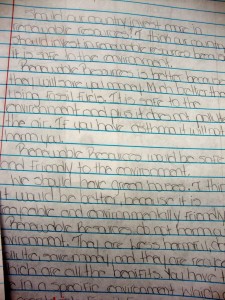 Should our country invest more in
renewable resources? I think our country
should invest in renewable resources because
it is safe to the environment.
Renewable Resources is better because
they will save you money. Much better than
using fossil fuels. It is safe to the
environment and plus it does not pollute
the air. If you have asthma it will not
harm you.
Renewable Resources would be safe
and friendly to the environment.
have green house. I think
it would be better because it is
and environmentally friendly
Renewable Resources do not harm our
environment. They are less harmful,
and they are
which are all the benefits. You have to
be in a specific environment which